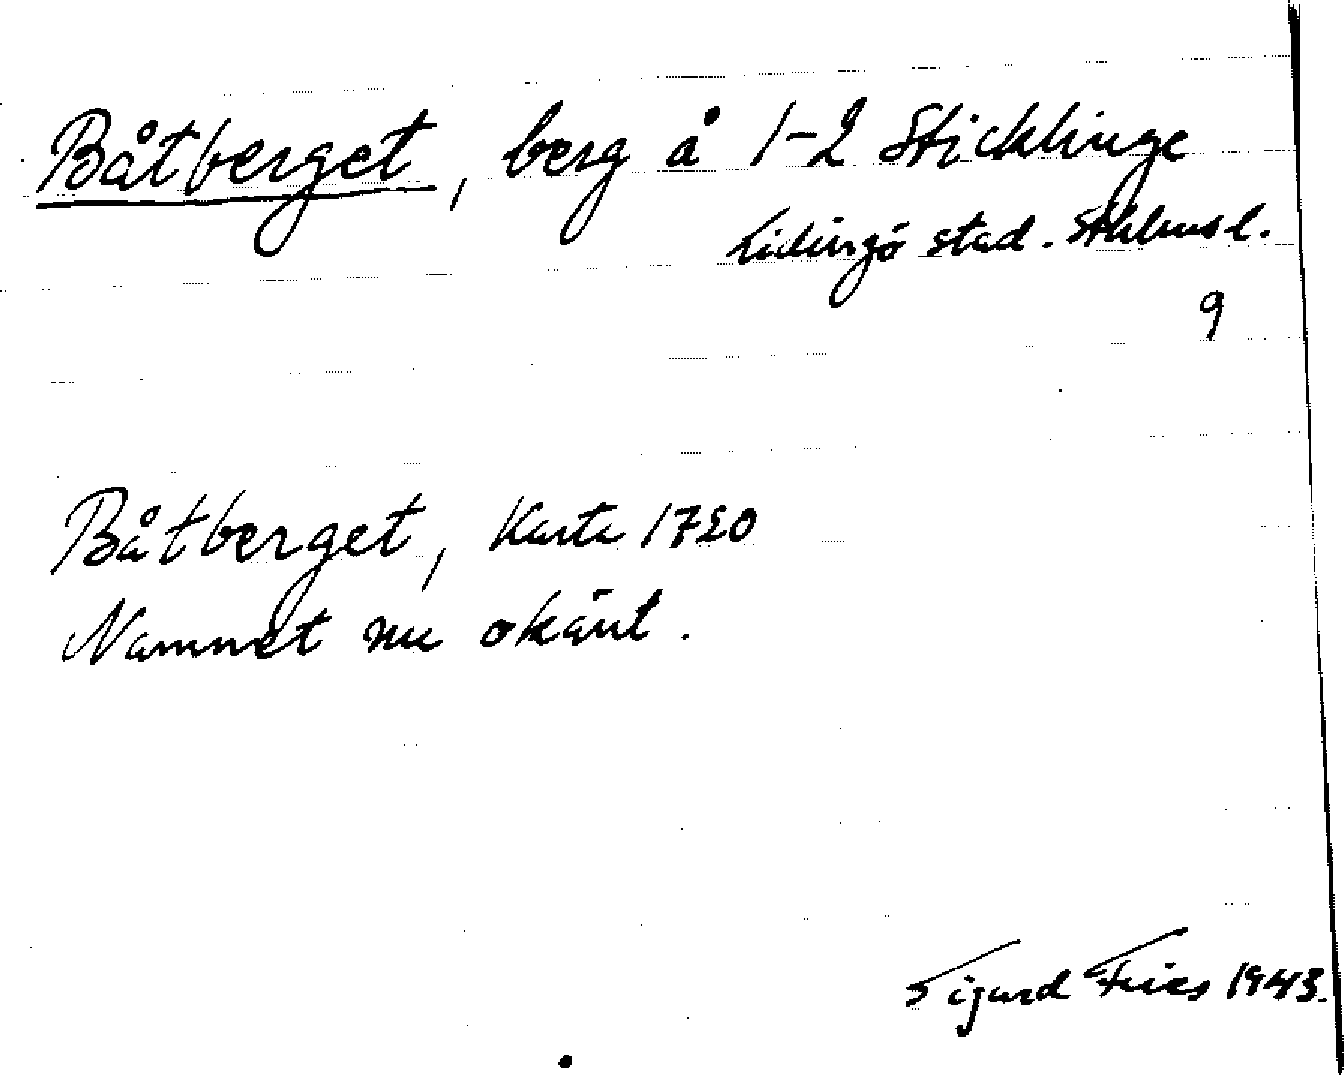 Båtberget, berg å 1-2 Sticklinge
Lidingö stad. Sthlms l.
9
Båtberget, Karta 1720
Namnet nu okänt.
Sigurd Fries 1943.